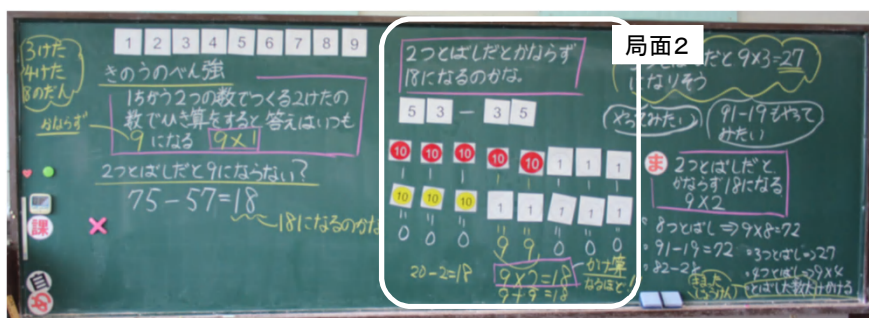 1 2 3 4 5 6 7 8 9
3けた
4けた
8のだん
かならず
きのうのべん強
1ちがう2つの数でつくる2けたの
数でひき算をすると答えはいつも
9になる 9×1
2つとばしだと9にならない?
75-57=18
18になるのかな
課
自
局面2
2つとばしだとかならず
18になるのかな。
5 3 - 3 5
10 10 10 10 10 1 1 1
10 10 10 1 1 1 1 1
0 0 0 9 9 0 0 0
20-2=18
9×2=18
9+9=18
かけ算
なるほど!
だと9×3=27
になりそう
やってみたい
91-19もやって
みたい
ま
2つとばしだと、
かならず18になる
9×2
8つとばし⇒9×8=72
91-19=72
82-28
3つとばし⇒27
4つとばし⇒9×4
とばした数だけかける